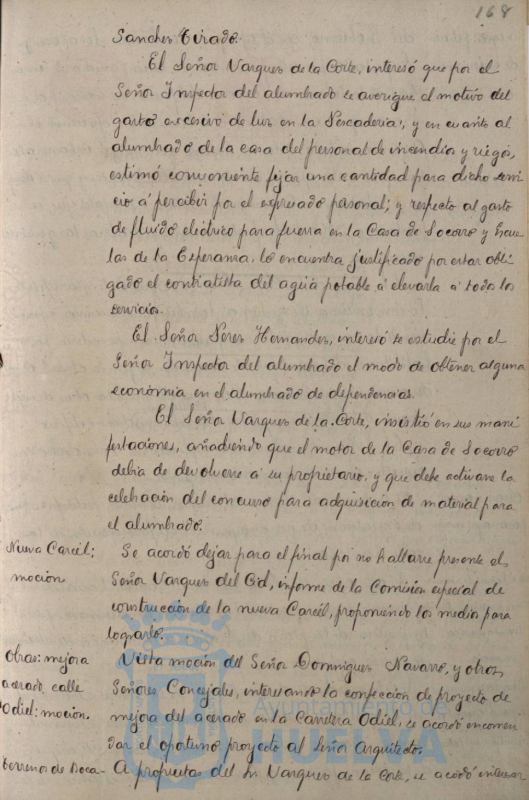 168
Sanchez Tirado.
El Señor Vazquez de la Corte, interesó que por el
Señor Inspector del alumbrado se averigüe el motivo del
gasto excesivo de luz en la Pescaderia, y en cuanto al
alumbrado de la casa del personal de incendia y riegos,
estimó conveniente fijar una cantidad para dicho servi
cio á percibir por el expresado personal; y respecto al gasto
de fluido eléctrico para fuerza en la Casa de Socorro y Escue
las de la Esperanza lo encuentra justificado por estar obli
gado el contratista del agua potable á elevarla á todos los
servicios.
El Señor Perez Hernandez, interesó se estudie por el
Señor Inspector del alumbrado el modo de obtener alguna
economia en el alumbrado de dependencias.
El Señor Vazquez de la Corte, insistió en sus mani
festaciones, añadiendo que el motor de la Casa de Socorro
debia de devolverse á su propietario, y que debe activarse la
celebración del concurso para adquisición de material para
el alumbrado.
Nueva Carcél;
moción.
Se acordó dejar para el final por no hallarse presente el
Señor Vazquez del Cid, informe de la Comisión especial de
construcción de la nueva Carcél, proponiendo los medios para
lograrlo.
Obras: mejora
acerado calle
Odiel: moción.
Vista moción del Señor Dominguez Navarro, y otros
Señores Concejales, interesando la confección de proyecto de
mejora del acerado en la Carretera Odiel, se acordó encomen
dar el oportuno proyecto al Señor Arquitecto.
Terrenos de Roca-
A propuesta del Sr. Vazquez de la Corte, se acordó interesar
Ayuntamiento de
HUELVA